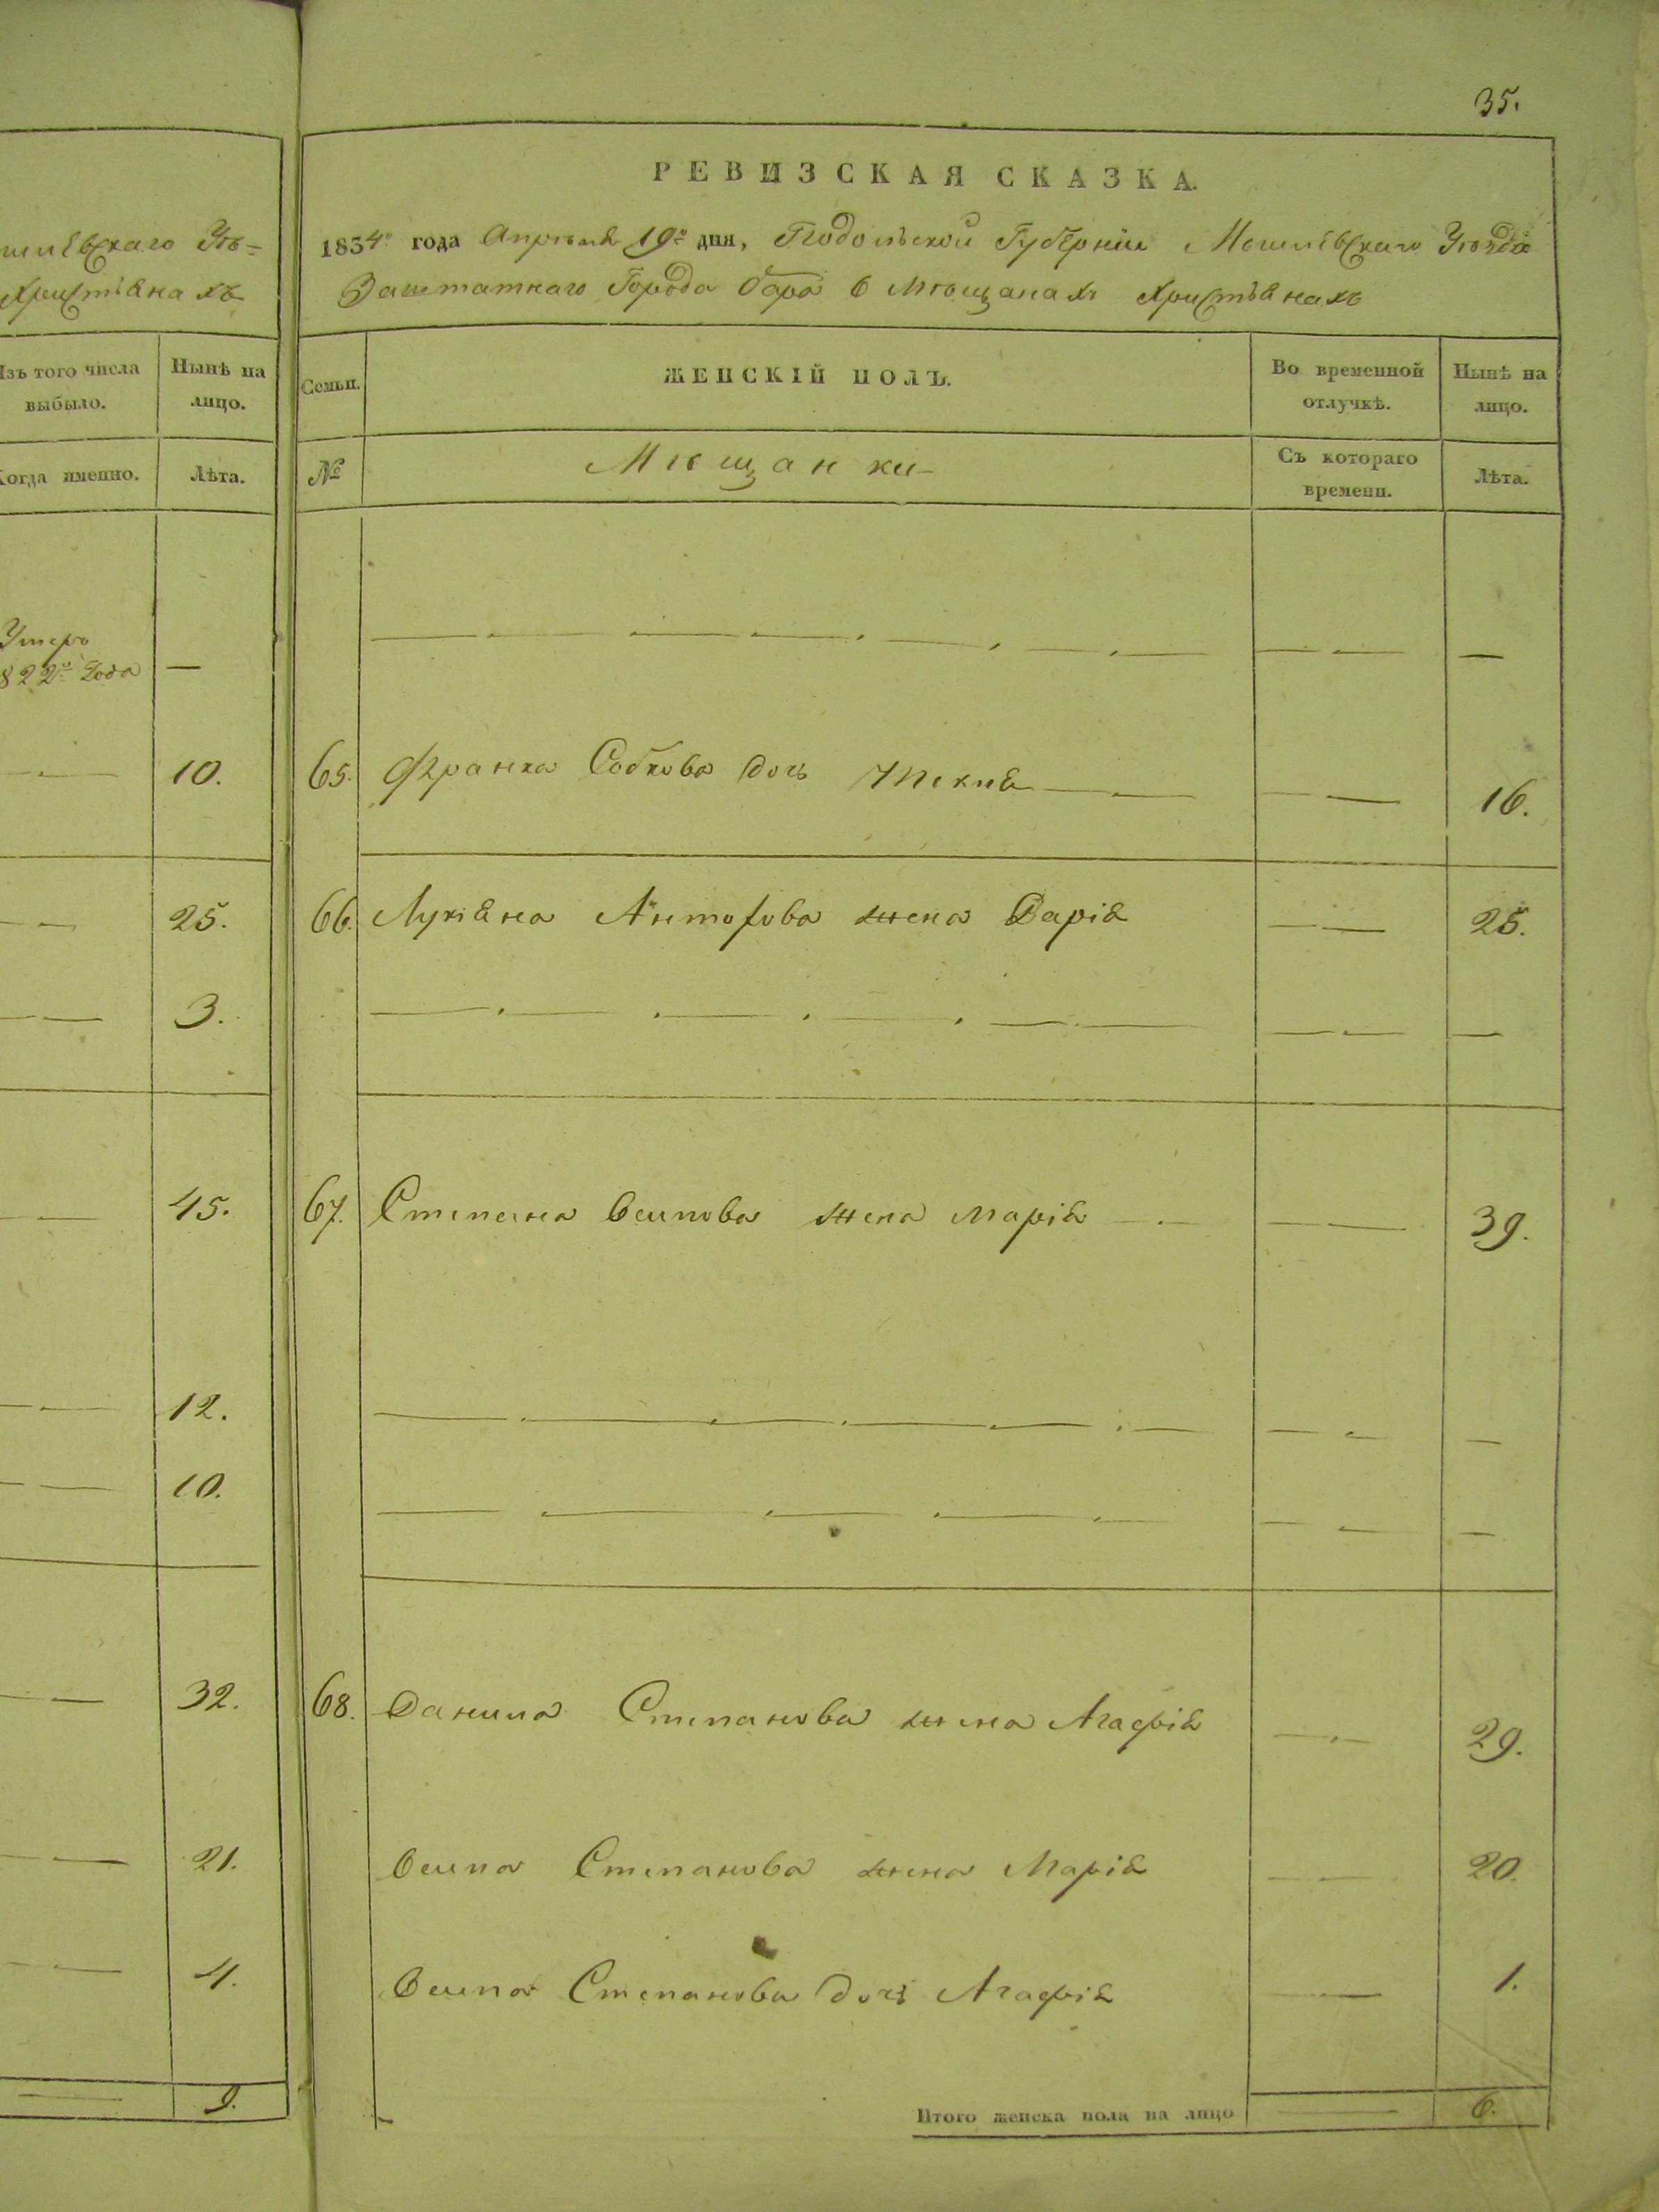 35.
шлёвскаго Уѣ=
Христіанахъ
Изъ того числа
выбыло.
Нынѣ на
лицо.
Когда именно.
Лѣта.
Умеръ
822го Года
—
10.
25.
3.
45.
12.
10.
32.
21.
4.
9.
РЕВИЗСКАЯ СКАЗКА.
1834го года Апрѣля 19го дня, Подольской Губерніи Уѣзда
Заштатнаго Города Бара в Мѣщанахъ Христіанахъ
Семьи.
ЖЕНСКІЙ ПОЛЪ.
Во временной
отлучкѣ.
Нынѣ на
лицо.
№
Мѣщанки
Съ котораго
времени.
Лѣта.
65. Франка Собкова дочь Текля 16.
66. Лукіана Антонова жена Дарія 25.
67. Степана Осипова жена Марія 39.
68. Данила Степанова жена Агафія 29.
Осипа Степанова жена Марія 20.
Осипа Степанова дочь Агафія 1.
Итого женска пола на лицо 6.